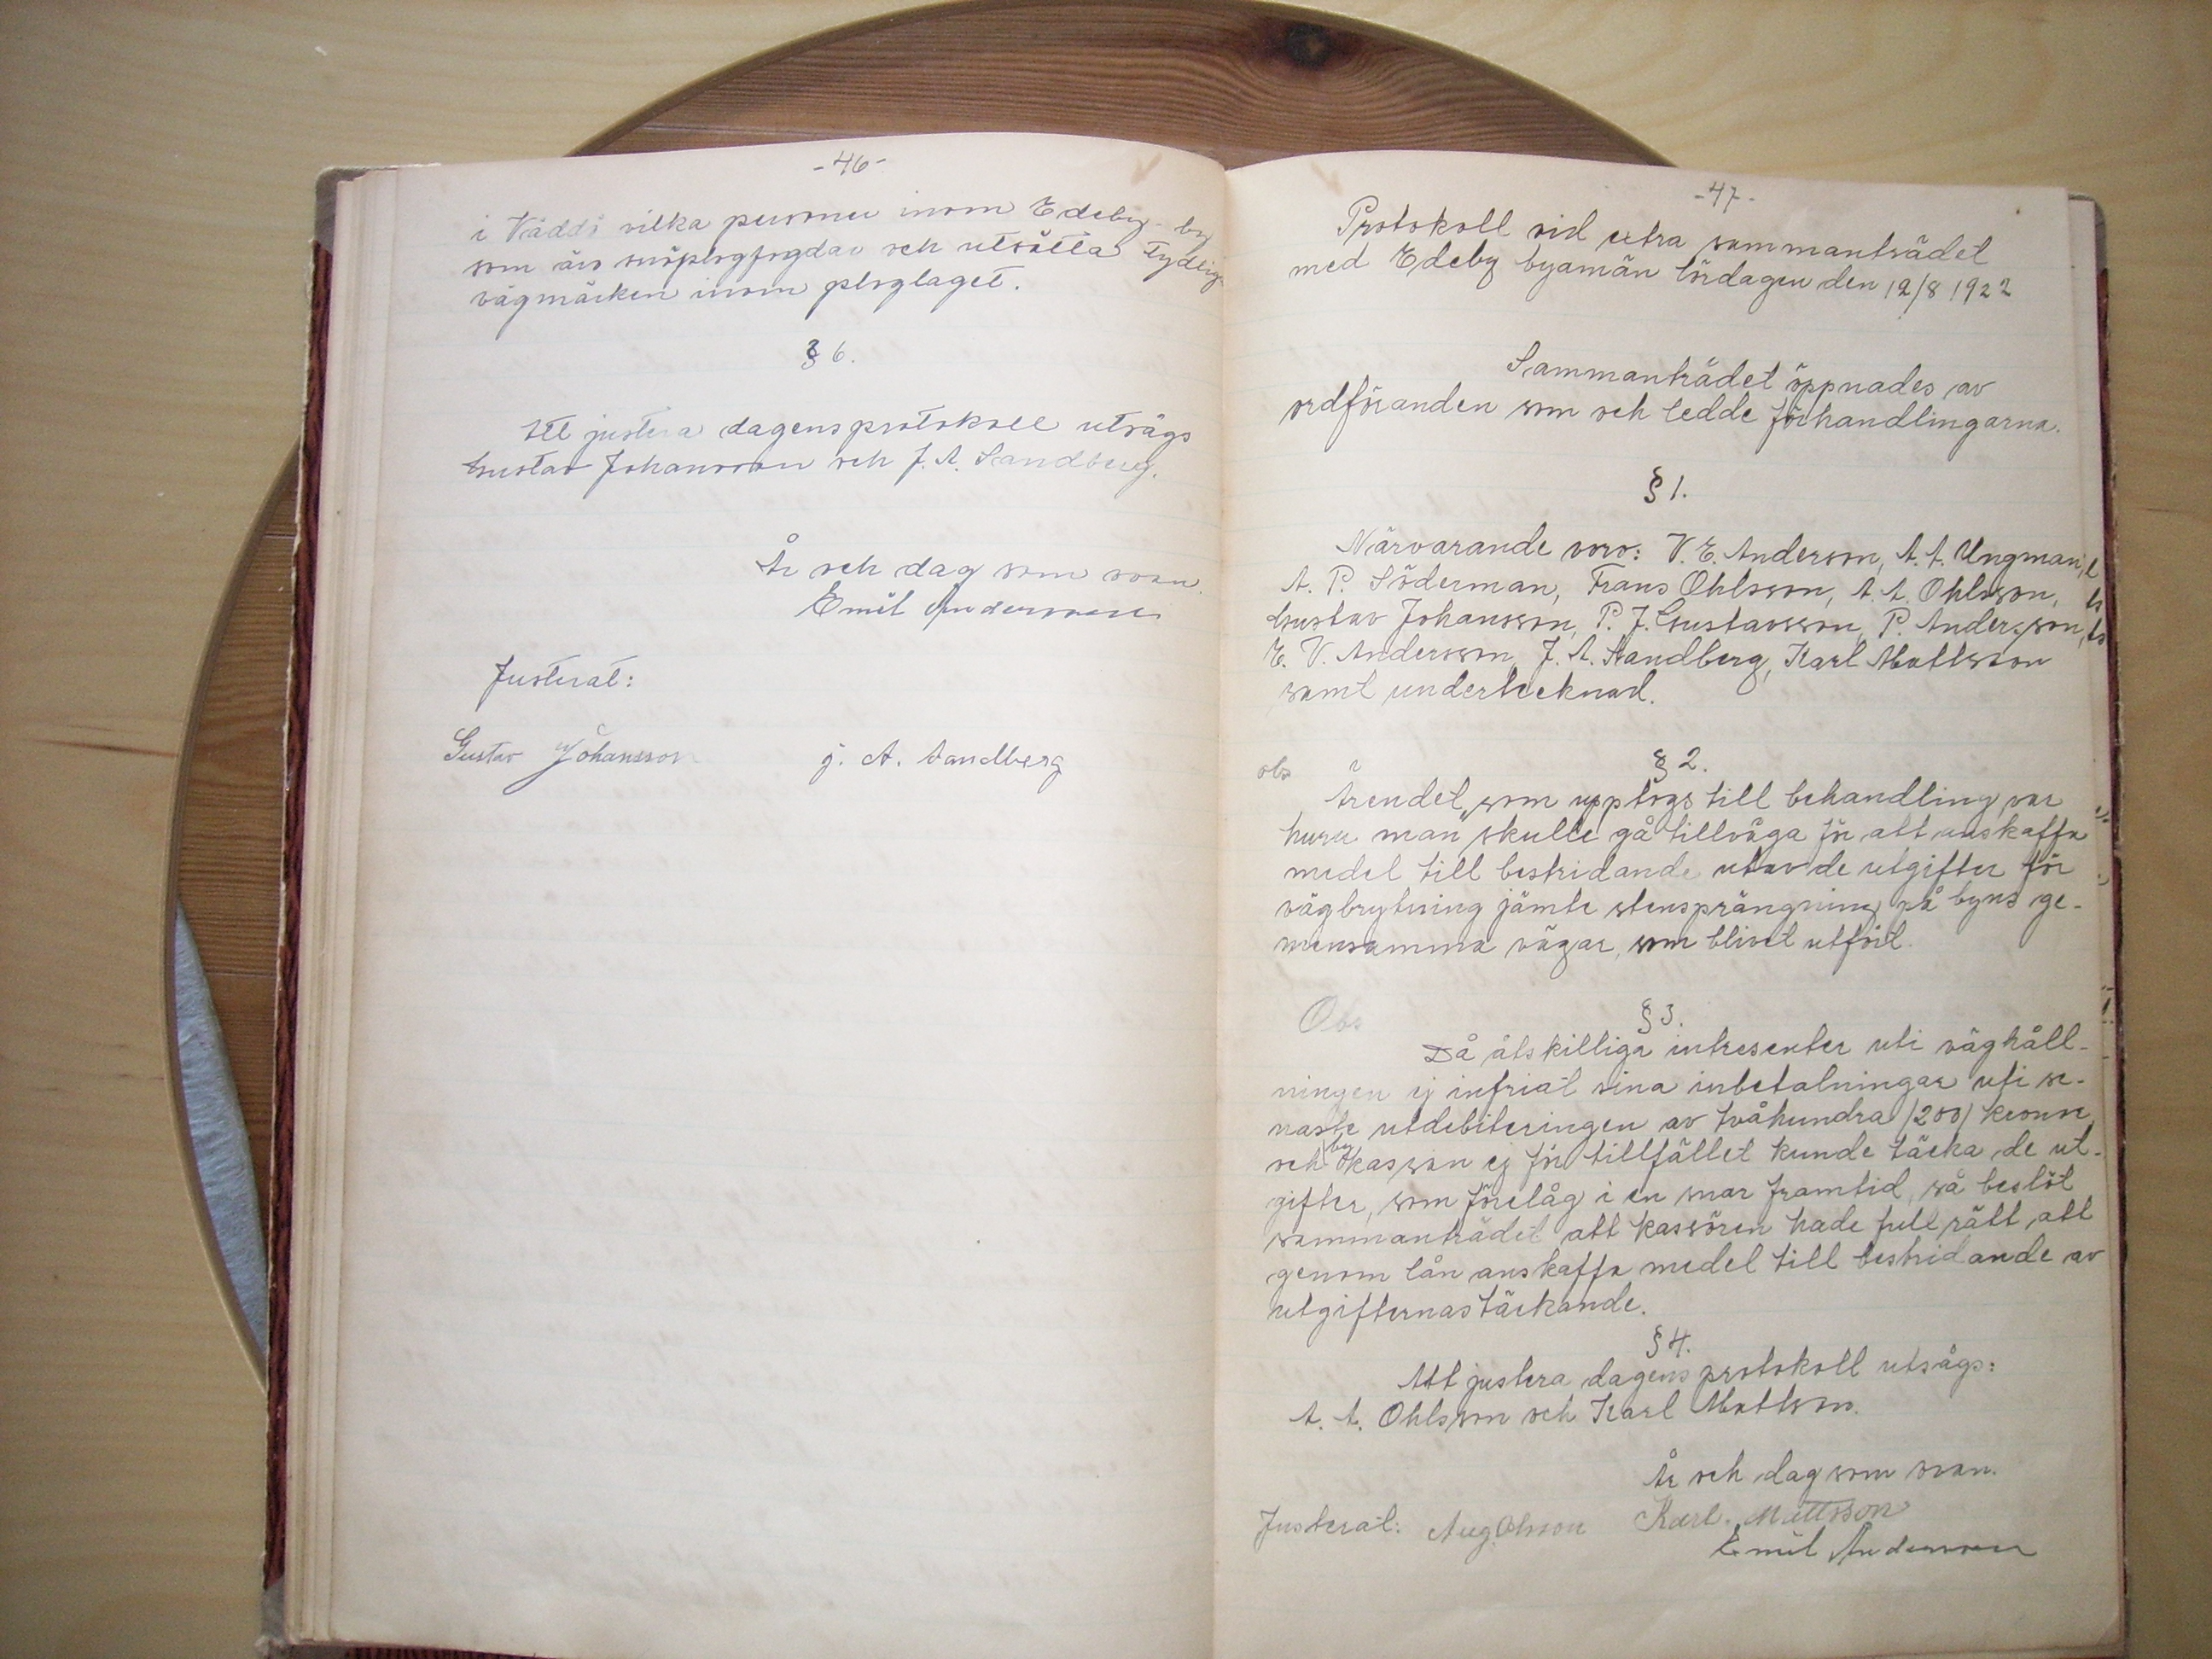 -46-
i Väddö vilka personer inom Edeby-by
som äro snöplogfogdar och utsätta tydlig
vägmärken inom ploglaget.
§ 6.
Att justera dagens protokoll utsågs
Gustav Johansson och J. A. Sandberg.
År och dag som ovan.
Emil Andersson
Justerat:
Gustav Johansson j. A. Sandberg
-47-
Protokoll vid extra sammanträdet
med Edeby byamän lördagen den 12/8 1922
Sammanträdet öppnades av
ordföranden som och ledde förhandlingarna.
§ 1.
Närvarande voro: V. E. Anderson, A. A. Ungman,
A. P. Söderman, Frans Ohlsson, A. A. Ohlsson,
Gustav Johansson, P. J. Gustavsson, P. Andersson,
E. V. Andersson, J. A. Sandberg, Karl Mattsson
samt undertecknad.
obs § 2.
Ärendet, som upptogs till behandling var
huru man skulle gå tillväga för att anskaffa
medel till bestridande utav de utgifter för
vägbrytning jämte stensprängning på byns ge-
mensamma vägar, som blivit utfört.
Obs § 3.
Då åtskilliga intresenter uti väghåll-
ningen ej infriat sina inbetalningar uti se-
naste utdebiteringen av tvåhundra /200/ kronor
och by kassan ej för tillfället kunde täcka de ut-
gifter, som förelåg i en snar framtid, så beslöt
sammanträdet att kassören hade full rätt att
genom lån anskaffa medel till bestridande av
utgifternas täckande.
§ 4.
Att justera dagens protokoll utsågs:
A. A. Ohlsson och Karl Mattsson.
År och dag som ovan.
Justerat: Aug. Olsson Karl. Mattsson
Emil Andersson